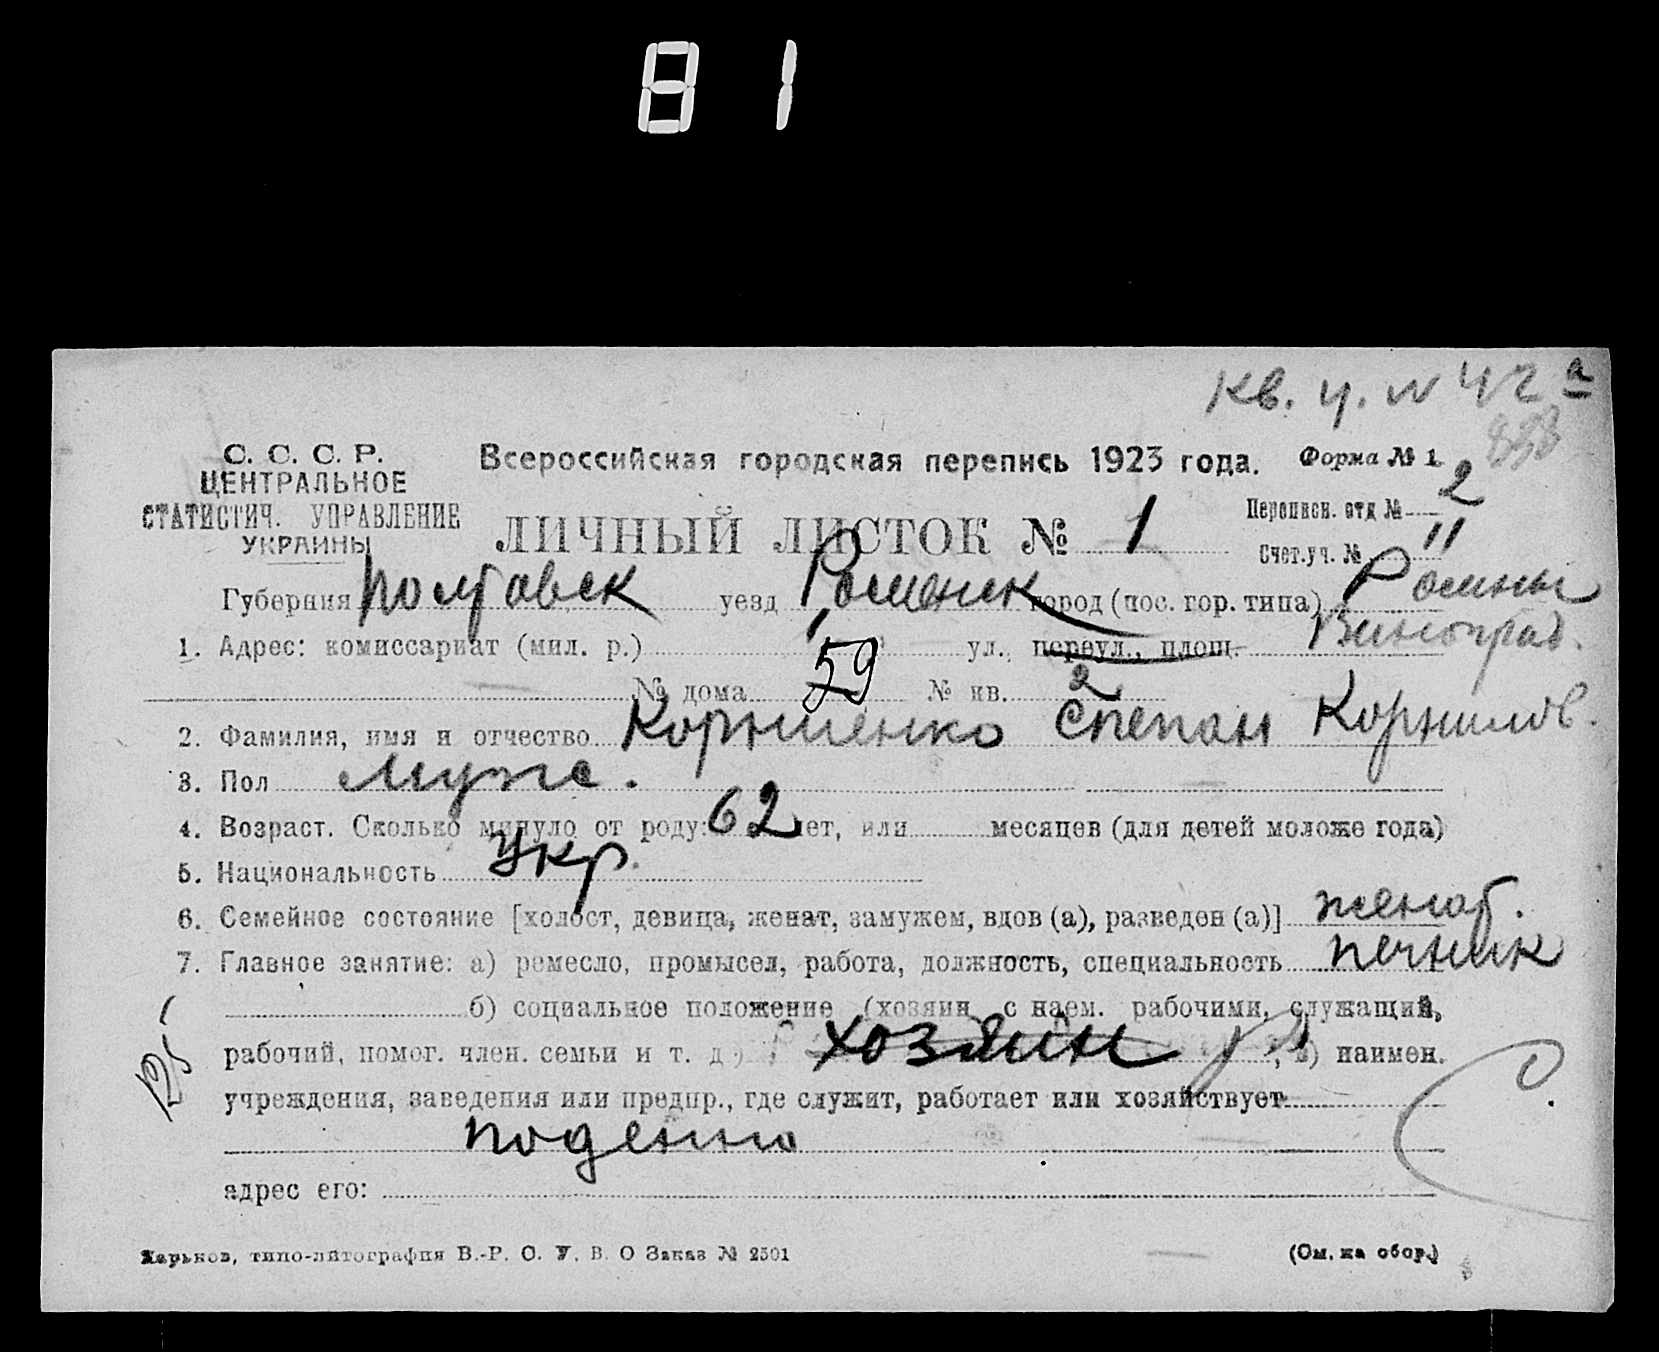 81
Кв. у. N 42 а
С. С. С. Р.
ЦЕНТРАЛЬНОЕ
СТАТИСТИЧ. УПРАВЛЕНИЕ
УКРАИНЫ
Всероссийская городская перепись 1923 года.
Форма № 1
ЛИЧНЫЙ ЛИСТОК № 1
Переписн. отд № 2
Счет.уч. № 11
Губерния Полтавск уезд Роменск город (пос. гор. типа) Ромны
1. Адрес: комиссариат (мил. р.) 1 ул., переул., площ. Виноград.
№ дома 59 № кв. 2
2. Фамилия, имя и отчество Корниенко Степан Корнилов.
3. Пол Мужс.
4. Возраст. Сколько минуло от роду: 62 лет, или месяцев (для детей моложе года)
5. Национальность Укр.
6. Семейное состояние [холост, девица, женат, замужем, вдов (а), разведен (а)] женат.
7. Главное занятие: а) ремесло, промысел, работа, должность, специальность печник
б) социальное положение (хозяин с наем. рабочими, служащий,
рабочий, помог. член. семьи и т. д.) хозяин , в) наимен.
учреждения, заведения или предпр., где служит, работает или хозяйствует
поденно
адрес его:
Харьков, типо-литография В.-Р. С. У. В. О Заказ № 2501
(См. на обор.)